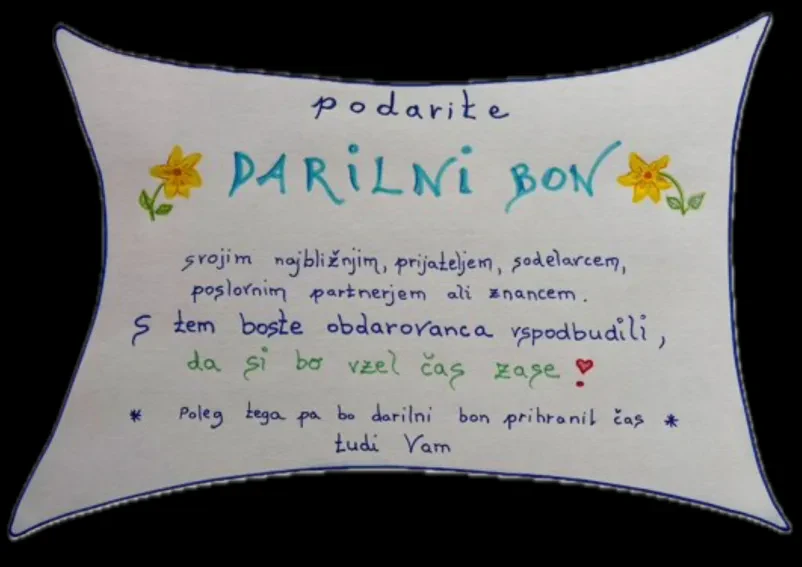 podarite
DARiLNi BON
svojim najbližnjim, prijateljem, sodelavcem,
poslovnim partnerjem ali znancem.
S tem boste obdarovanca vspodbudili,
da si bo vzel čas zase!
* Poleg tega pa bo darilni bon prihranil čas *
tudi Vam